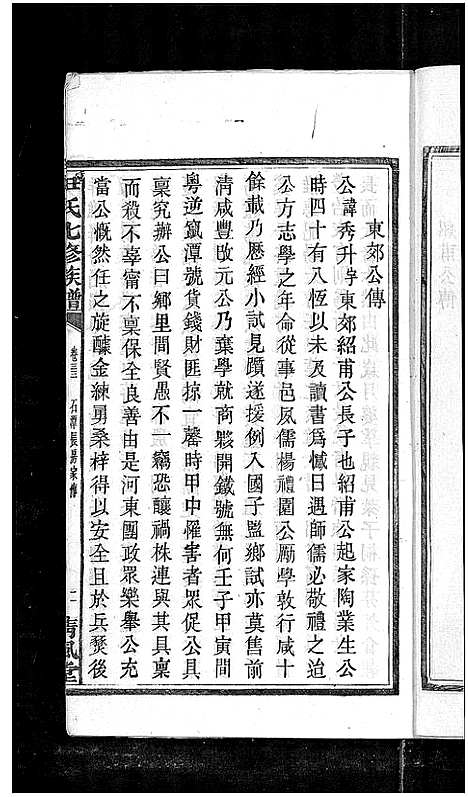 東郊公傳
公諱秀升字東郊紹甫公長子也紹甫公起家陶業生公
時四十有八恆以未及讀書爲憾日遇師儒必敬禮之迨
公方志學之年命從事邑夙儒楊禮園公勵學敦行咸十
餘載乃歷經小試見躓遂援例入國子監鄉試亦莫售前
清咸豐改元公乃棄學就商夥開鐵號無何壬子甲寅間
粵逆竄潭號貨錢財匪掠一罄時甲中罹害者眾促公具
稟究辦公曰鄉里間賢愚不一竊恐釀禍株連與其具稟
而殺不辜甯不稟保全良善由是河東團政眾樂舉公充
當公慨然任之旋醵金練勇桑梓得以安全且於兵燹後
氏七修族譜
卷三
石潭長房家傳
二
清風堂
紹甫公傳